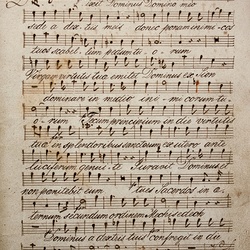 Dixit Dominus Domino meo
sede a dextris meis donec ponam inimicos
tuos scabellum pedum tuorum
Virgam virtutis tuae emittet Dominus ex Sion
dominari in medio inimicorum tu
orum Tecum principium in die virtutis
tuae in splendoribus sanctorum ex utero ante
luciferum genui te Juravit Dominus et
non poenitebit eum Tu es Sacerdos in ae
ternum secundum ordinem Melchisedech
Dominus a dextris tuis confregit in die